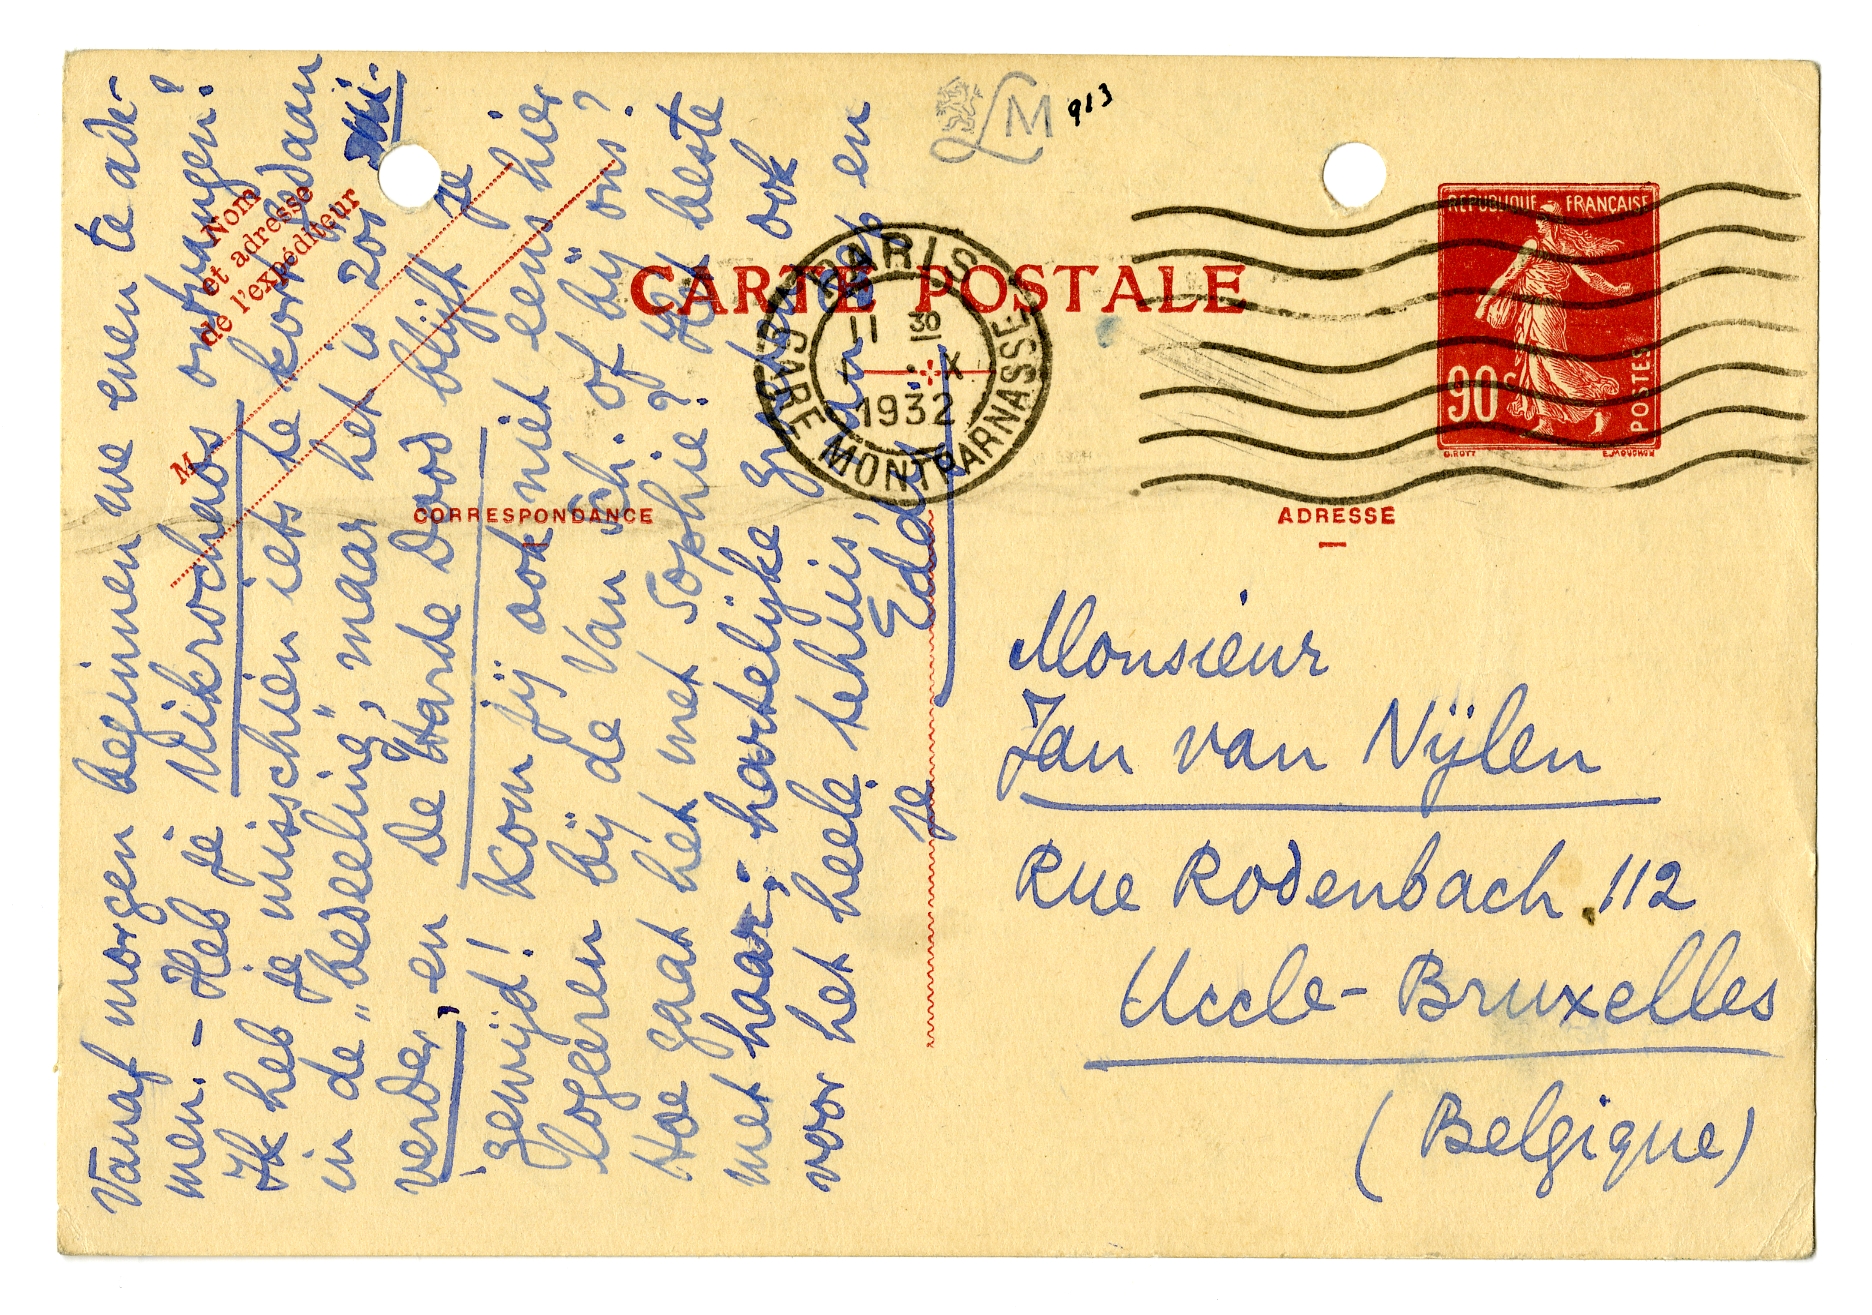 Vanaf morgen beginnen we even te ade-
men. - Heb je Mikrochaos ontvangen?
Ik heb je misschien iets te kort gedaan
in de "bedeeling", maar het is zoo mi-
verder, en De Harde Dood blijft je
gewijd! Kom jij ook niet eens hier
logeren bij de Van Sch. of bij ons?
Hoe gaat het met Sophie? Het beste
met haar; hartelijke groeten ook
voor het heele tehuis, van Bep en
je Eddy
Nom
et adresse
de l'expéditeur
M
CORRESPONDANCE
LM 913
CARTE POSTALE
PARIS
GARE MONTPARNASSE
11 30
X
1932
REPUBLIQUE FRANÇAISE
90 c
POSTES
O.ROTY E.MOUCHON
ADRESSE
Monsieur
Jan van Nijlen
Rue Rodenbach 112
Uccle-Bruxelles
(Belgique)